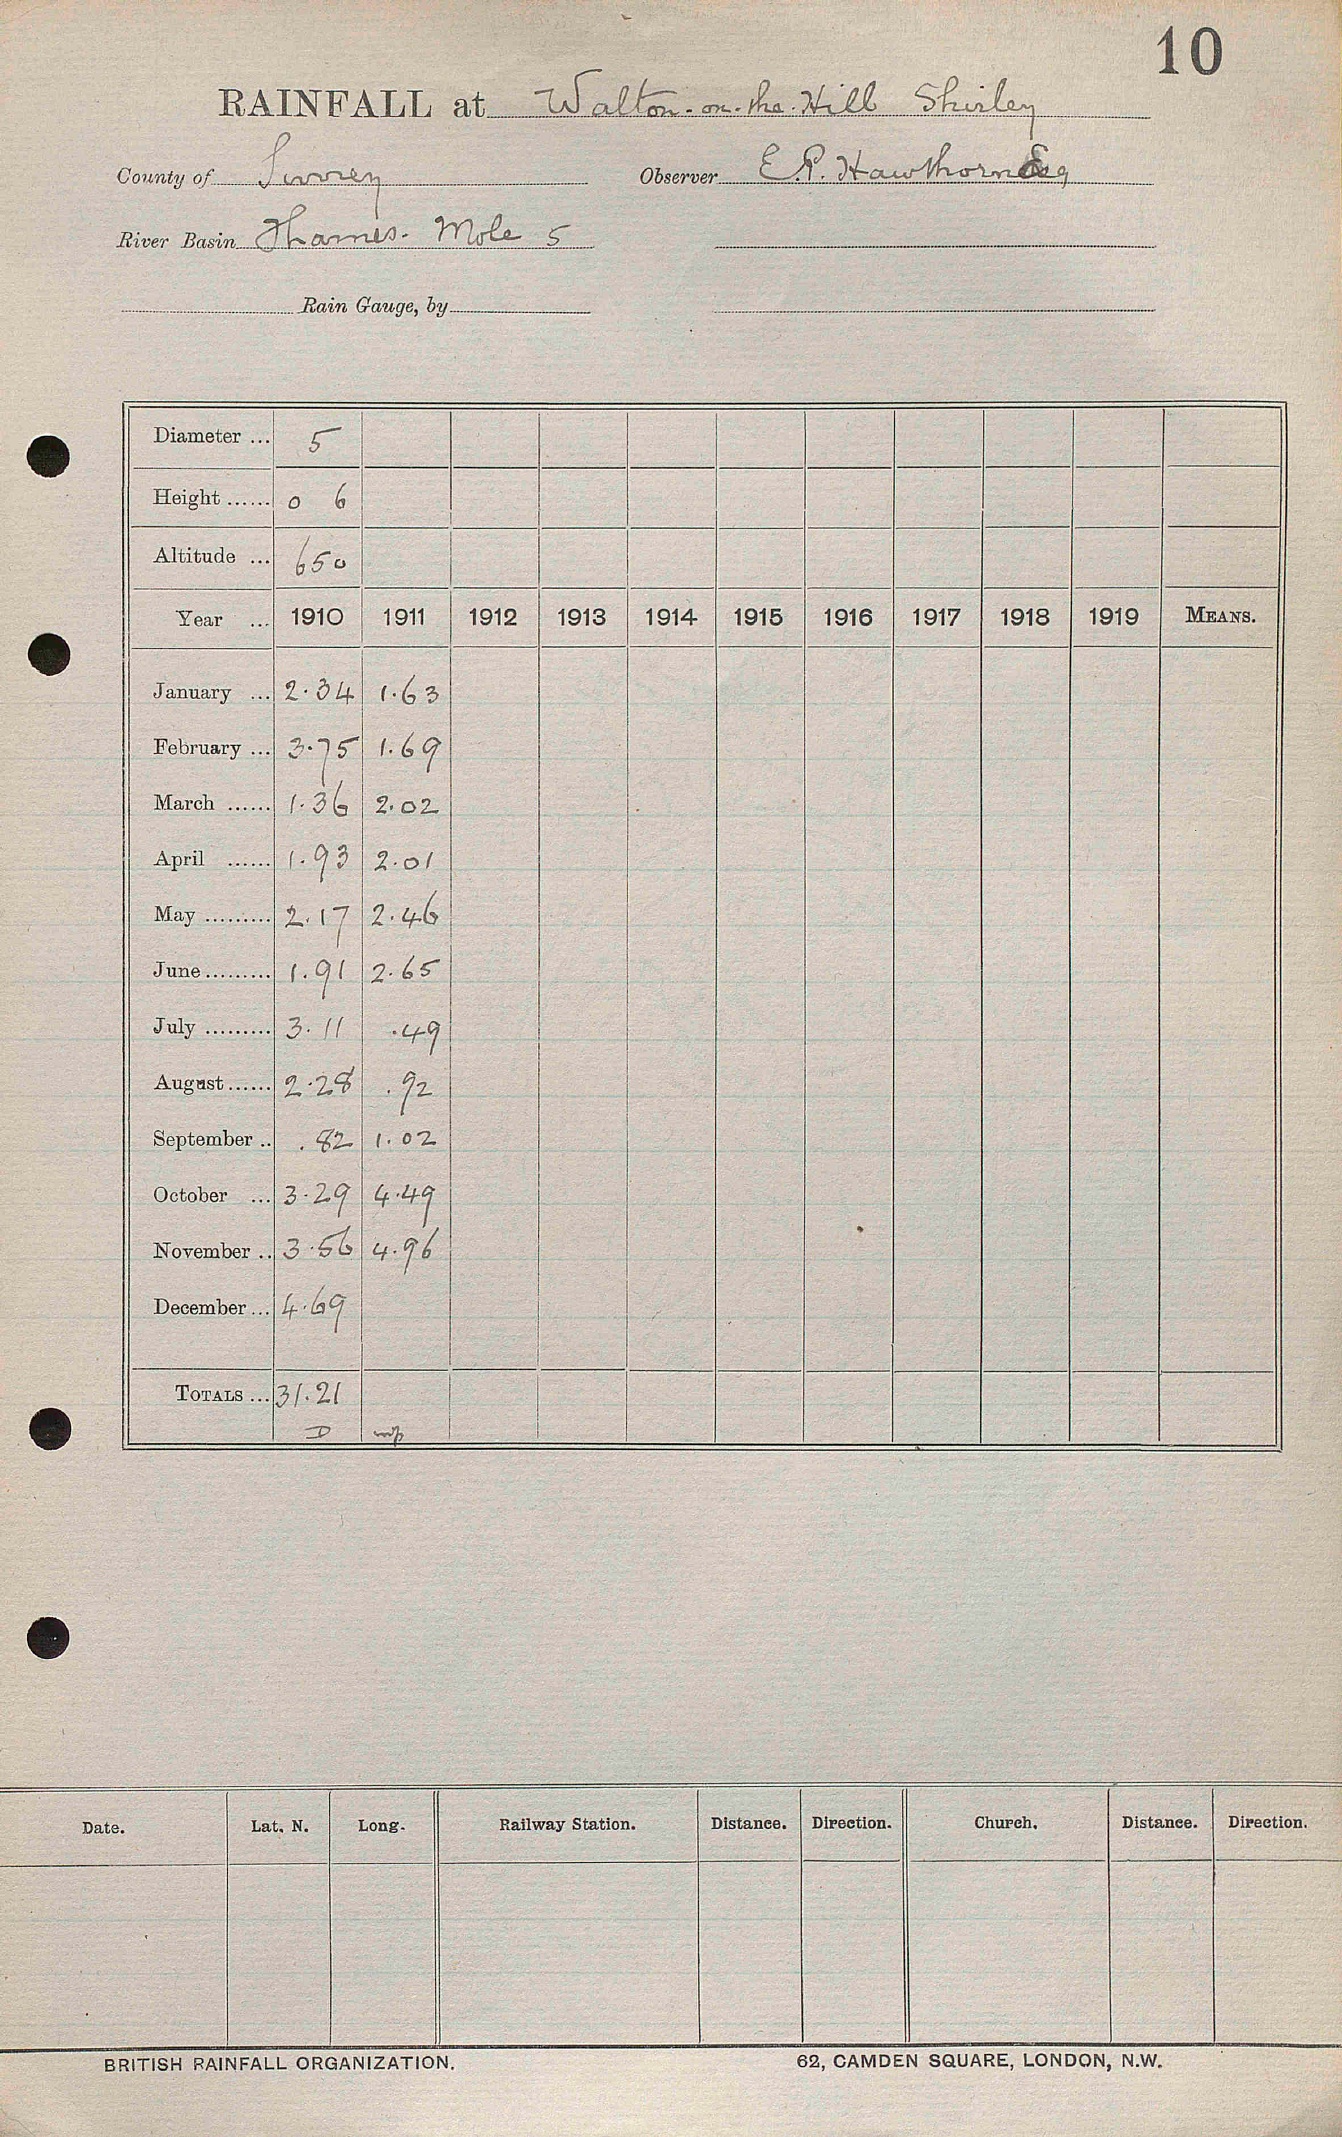 10
RAINFALL at Walton-on-the-Hill Shirley
County of Surrey Observer E.P. Hawthorn Esq
River Basin Thames. Mole 5
Rain Gauge, by
Diameter ... 5
Height ...... 0 6
Altitude ... 650
Year ... 1910 1911 1912 1913 1914 1915 1916 1917 1918 1919 MEANS.
January ... 2.34 1.63
February ... 3.75 1.69
March ...... 1.36 2.02
April ...... 1.93 2.01
May ......... 2.17 2.46
June ......... 1.91 2.65
July ......... 3.11 .49
August ...... 2.28 .92
September .. .82 1.02
October ... 3.29 4.49
November .. 3.56 4.96
December ... 4.69
TOTALS ... 31.21
D
Date. Lat. N. Long. Railway Station. Distance. Direction. Church. Distance. Direction.
BRITISH RAINFALL ORGANIZATION. 62, CAMDEN SQUARE, LONDON, N.W.